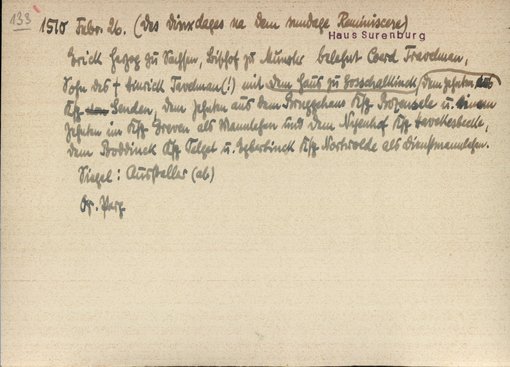 133
1510 Febr. 26. (des dinxdages na dem sundage Reminiscere)
Haus Surenburg
Erich Herzog zu Sachsen, Bischof zu Münster belehnt Coerd Travdman,
Sohn des + Henrich Tavdman(!) mit dem Haus zu, dem Zehnten
Ksp. Senden, dem Zehnten aus dem Ksp. u. einem
Zehnten im Ksp. Greven als Mannlehen und dem Nyenhof Ksp.
dem Boddinck Ksp. Telget u. Egberdinck Ksp. Nortwolde als Dienstmannlehen.
Siegel: Aussteller (ab)
Or. Perg.